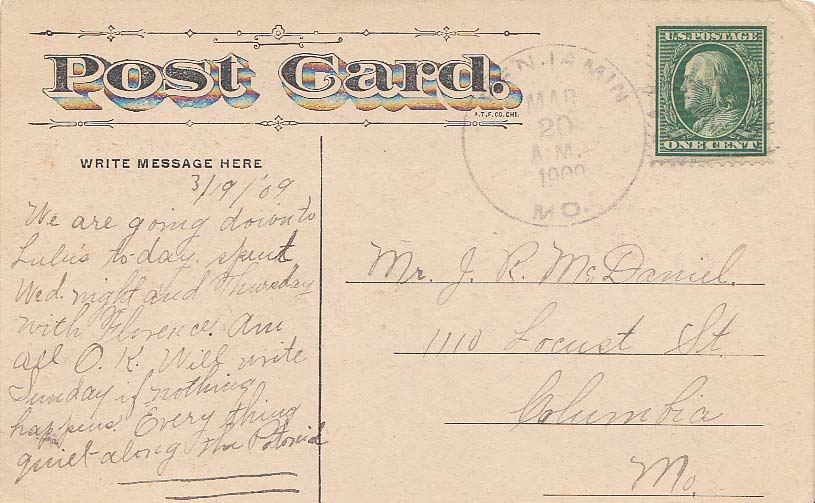 Post Card.
A.T.F.CO.CHI.
U.S.POSTAGE
ONE CENT
ENJAMIN
MAR
20
A.M.
1909
MO.
WRITE MESSAGE HERE
3/19/'09
We are going down to
Lulu's to-day. spent
Wed. night and Thursday
with Florence. Am
all O. K. Will write
Sunday if nothing
happens. Every thing
quiet along the
Mr. J. R. McDaniel.
1110 Locust St.
Columbia
Mo.